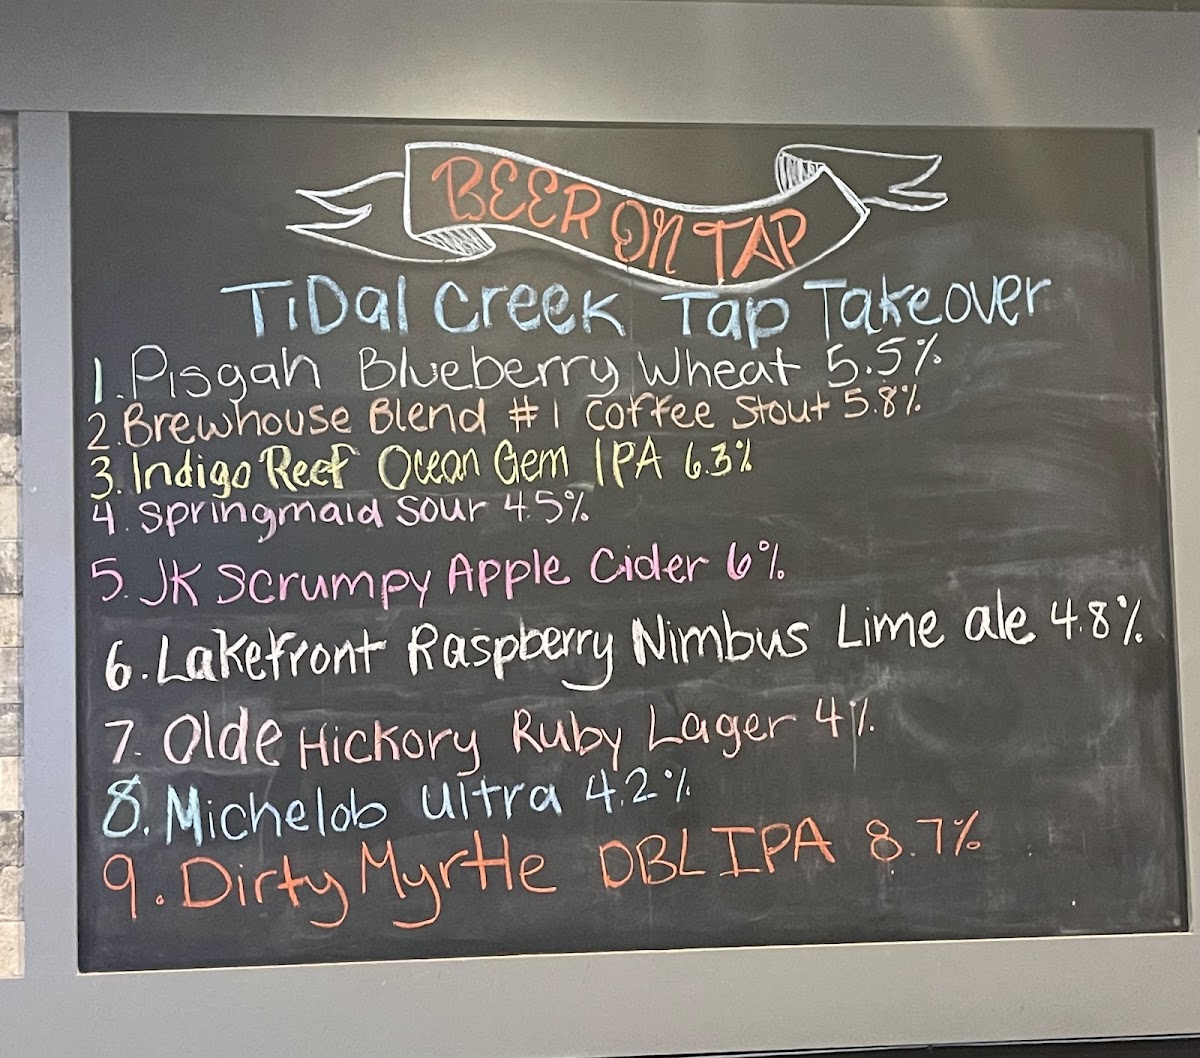 BEER ON TAP
TiDal Creek Tap Takeover
1. Pisgah Blueberry Wheat 5.5%
2. Brewhouse Blend #1 Coffee Stout 5.8%
3. Indigo Reef Ocean Gem IPA 6.3%
4. Springmaid Sour 4.5%
5. JK Scrumpy Apple Cider 6%
6. Lakefront Raspberry Nimbus Lime ale 4.8%
7. Olde Hickory Ruby Lager 4%
8. Michelob Ultra 4.2%
9. Dirty Myrtle DBL IPA 8.7%